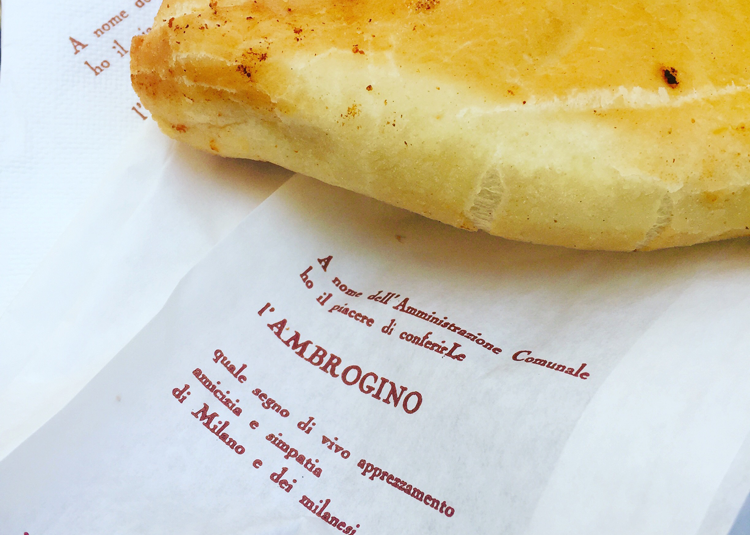 A nome de
ho il
l'
A nome dell'Amministrazione Comunale
ho il piacere di conferirLe
l'AMBROGINO
quale segno di vivo apprezzamento
amicizia e simpatia
di Milano e dei milanesi